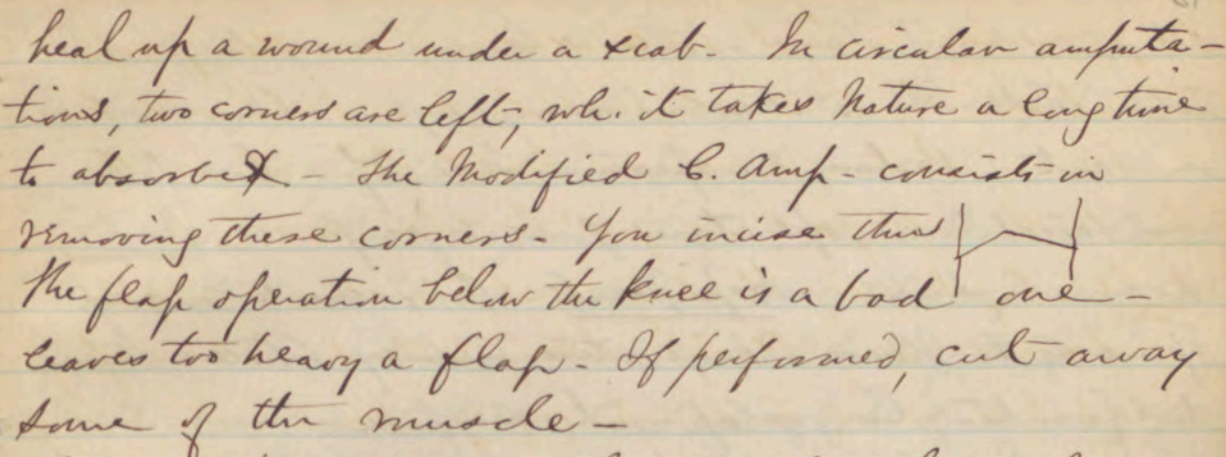 heal up a wound under a scab. In circular amputa-
tions, two corners are left, wh. it takes Nature a long time
to absorb. - The Modified C. Amp - consists in
removing these corners. You incise thus
The flap operation below the knee is a bad one -
leaves too heavy a flap - If performed, cut away
some of the muscle -